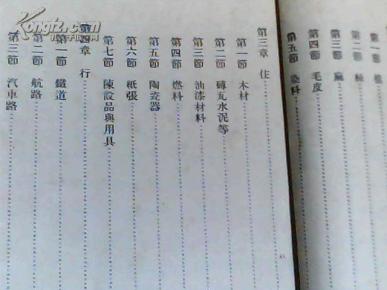 第四節 毛皮
第五節 染料
第三章 住
第一節 木材
第二節 磚瓦水泥等
第三節 油漆材料
第四節 燃料
第五節 陶瓷器
第六節 紙張
第七節 陳設品與用具
第四章 行
第一節 鐵道
第二節 航路
第三節 汽車路